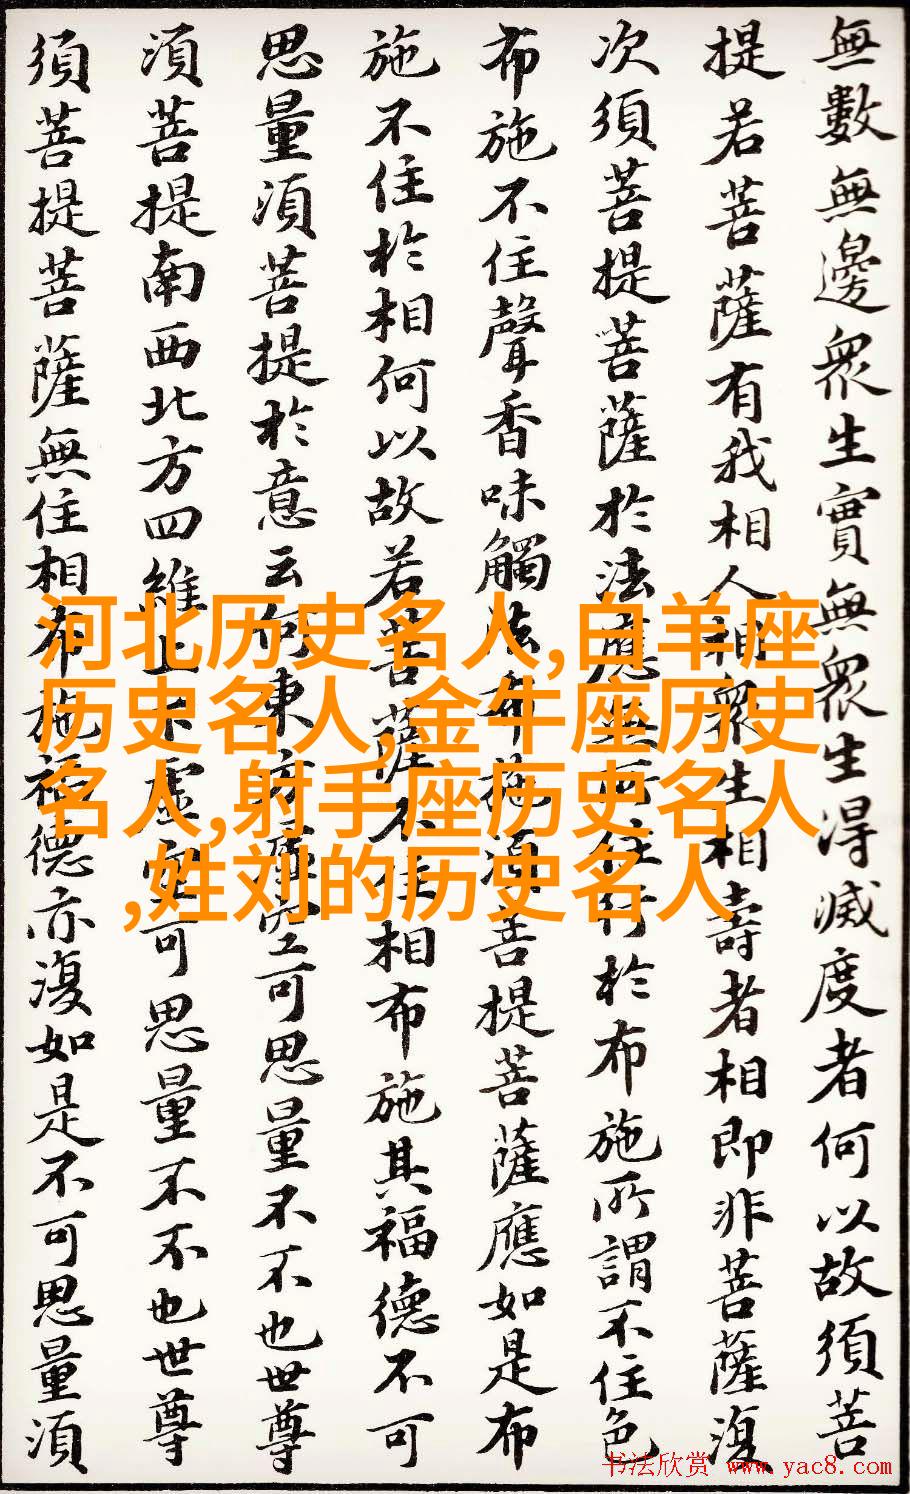 無數無邊眾生實無眾生得滅度者何以故須菩
提若菩薩有我相人相眾生相壽者相即非菩薩復
次須菩提菩薩於法應無所住行於布施所謂不住色
布施不住聲香味觸法布施須菩提菩薩應如是布
施不住於相何以故若菩薩不住相布施其福德不可
思量須菩提於意云何東方虛空可思量不不也世尊
須菩提南西北方四維上下虛空可思量不不也世尊
須菩提菩薩無住相布施福德亦復如是不可思量須
河北历史名人,白羊座
历史名人,金牛座历史
名人,射手座历史名人
,姓刘的历史名人
书法欣赏 www.yac8.com